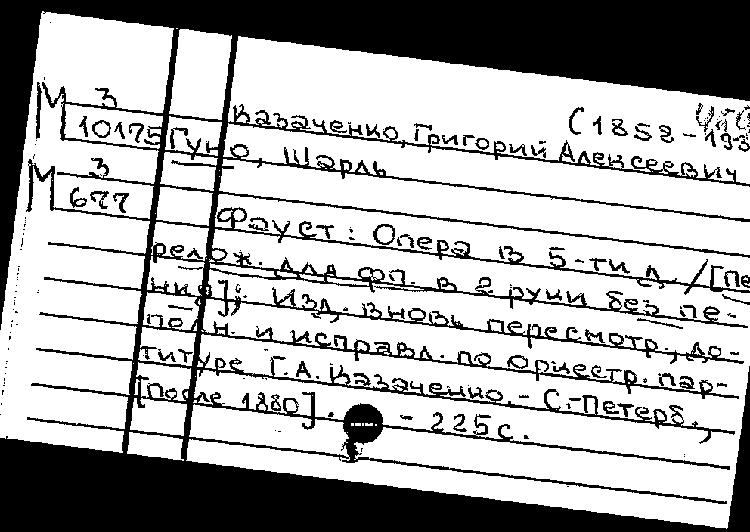 М 3 10175
М 3 677
Казаченко, Григорий Алексеевич (1858-193
Гуно, Шарль
Фауст: Опера в 5-ти д. / [Пе
релож. для фп. в 2 руки без пе-
ния]; Изд. вновь пересмотр., до-
полн. и исправл. по оркестр. пар-
титуре Г.А. Казаченко. - С.-Петерб.,
[после 1880]. - 225 с.